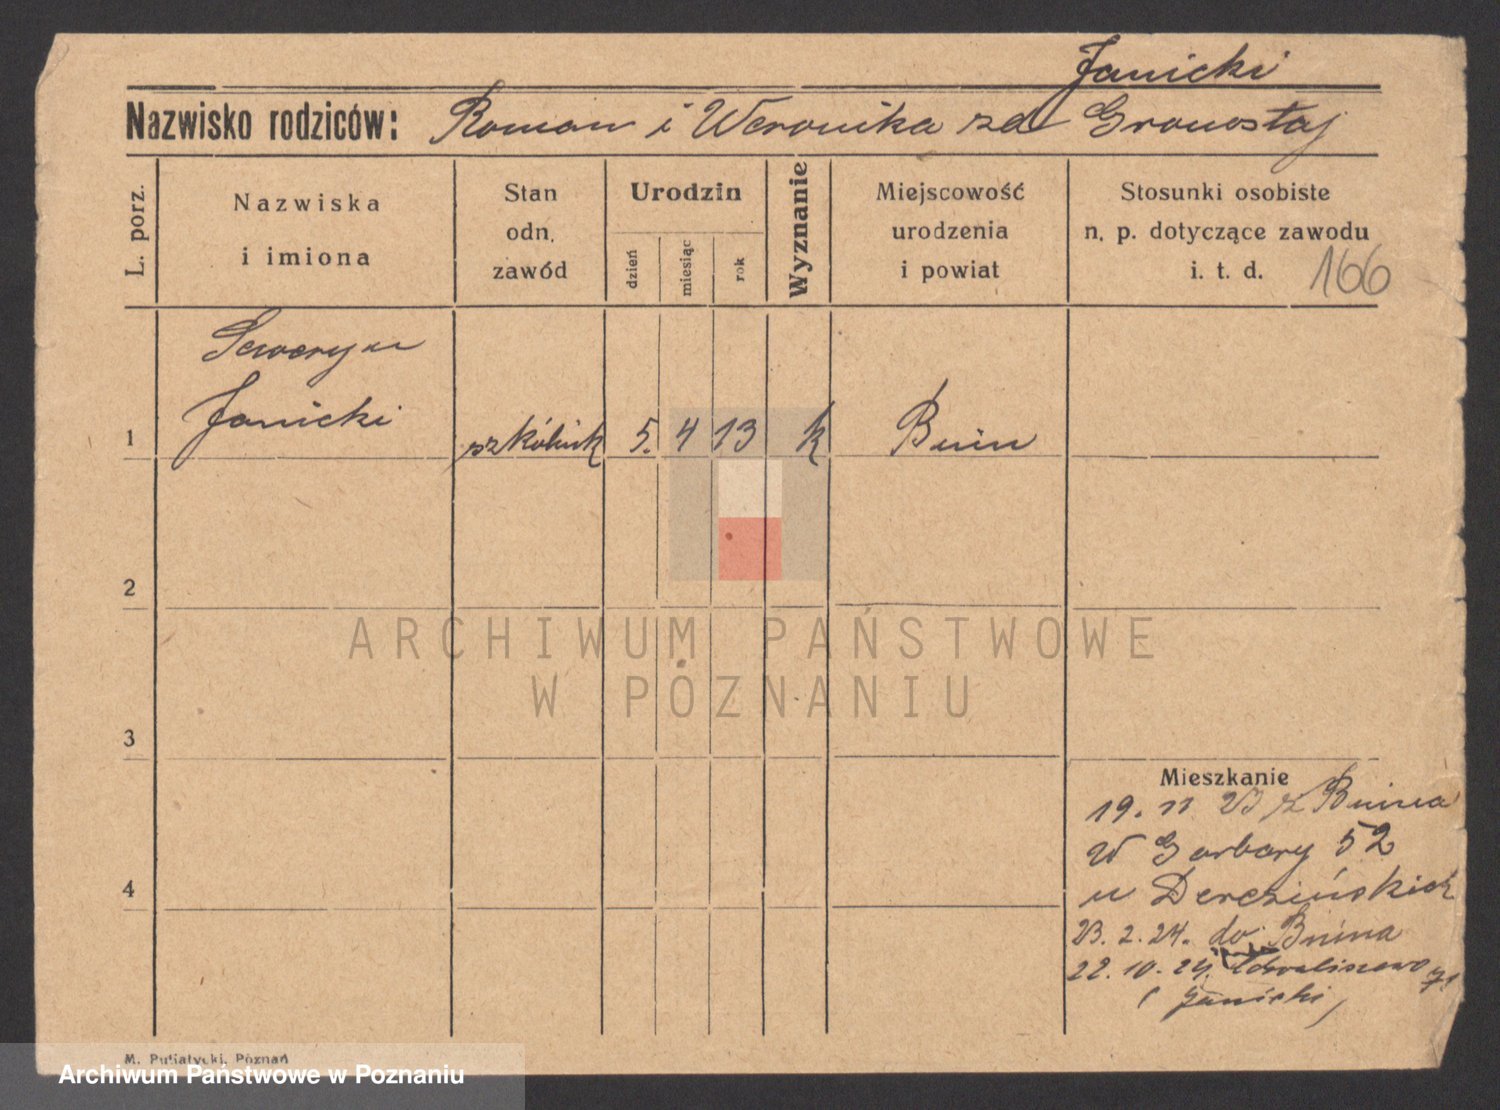 Janicki
Nazwisko rodziców: Roman i Weronika zd Gronostaj
L. porz.
Nazwiska
i imiona
Stan
odn.
zawód
Urodzin
dzień
miesiąc
rok
Wyznanie
Miejscowość
urodzenia
i powiat
Stosunki osobiste
n. p. dotyczące zawodu
i. t. d.
166
Seweryn
Janicki
1 szkólnik 5. 4 13 k Bnin
2
ARCHIWUM PAŃSTWOWE
W POZNANIU
3
Mieszkanie
19. 11 23 z Bnina
W Garbary 52
u Derezińskich
23. 2. 24. do Bnina
22. 10. 24. Chwaliszewo 71
(Janicki)
4
M. Putiatycki, Poznań
Archiwum Państwowe w Poznaniu